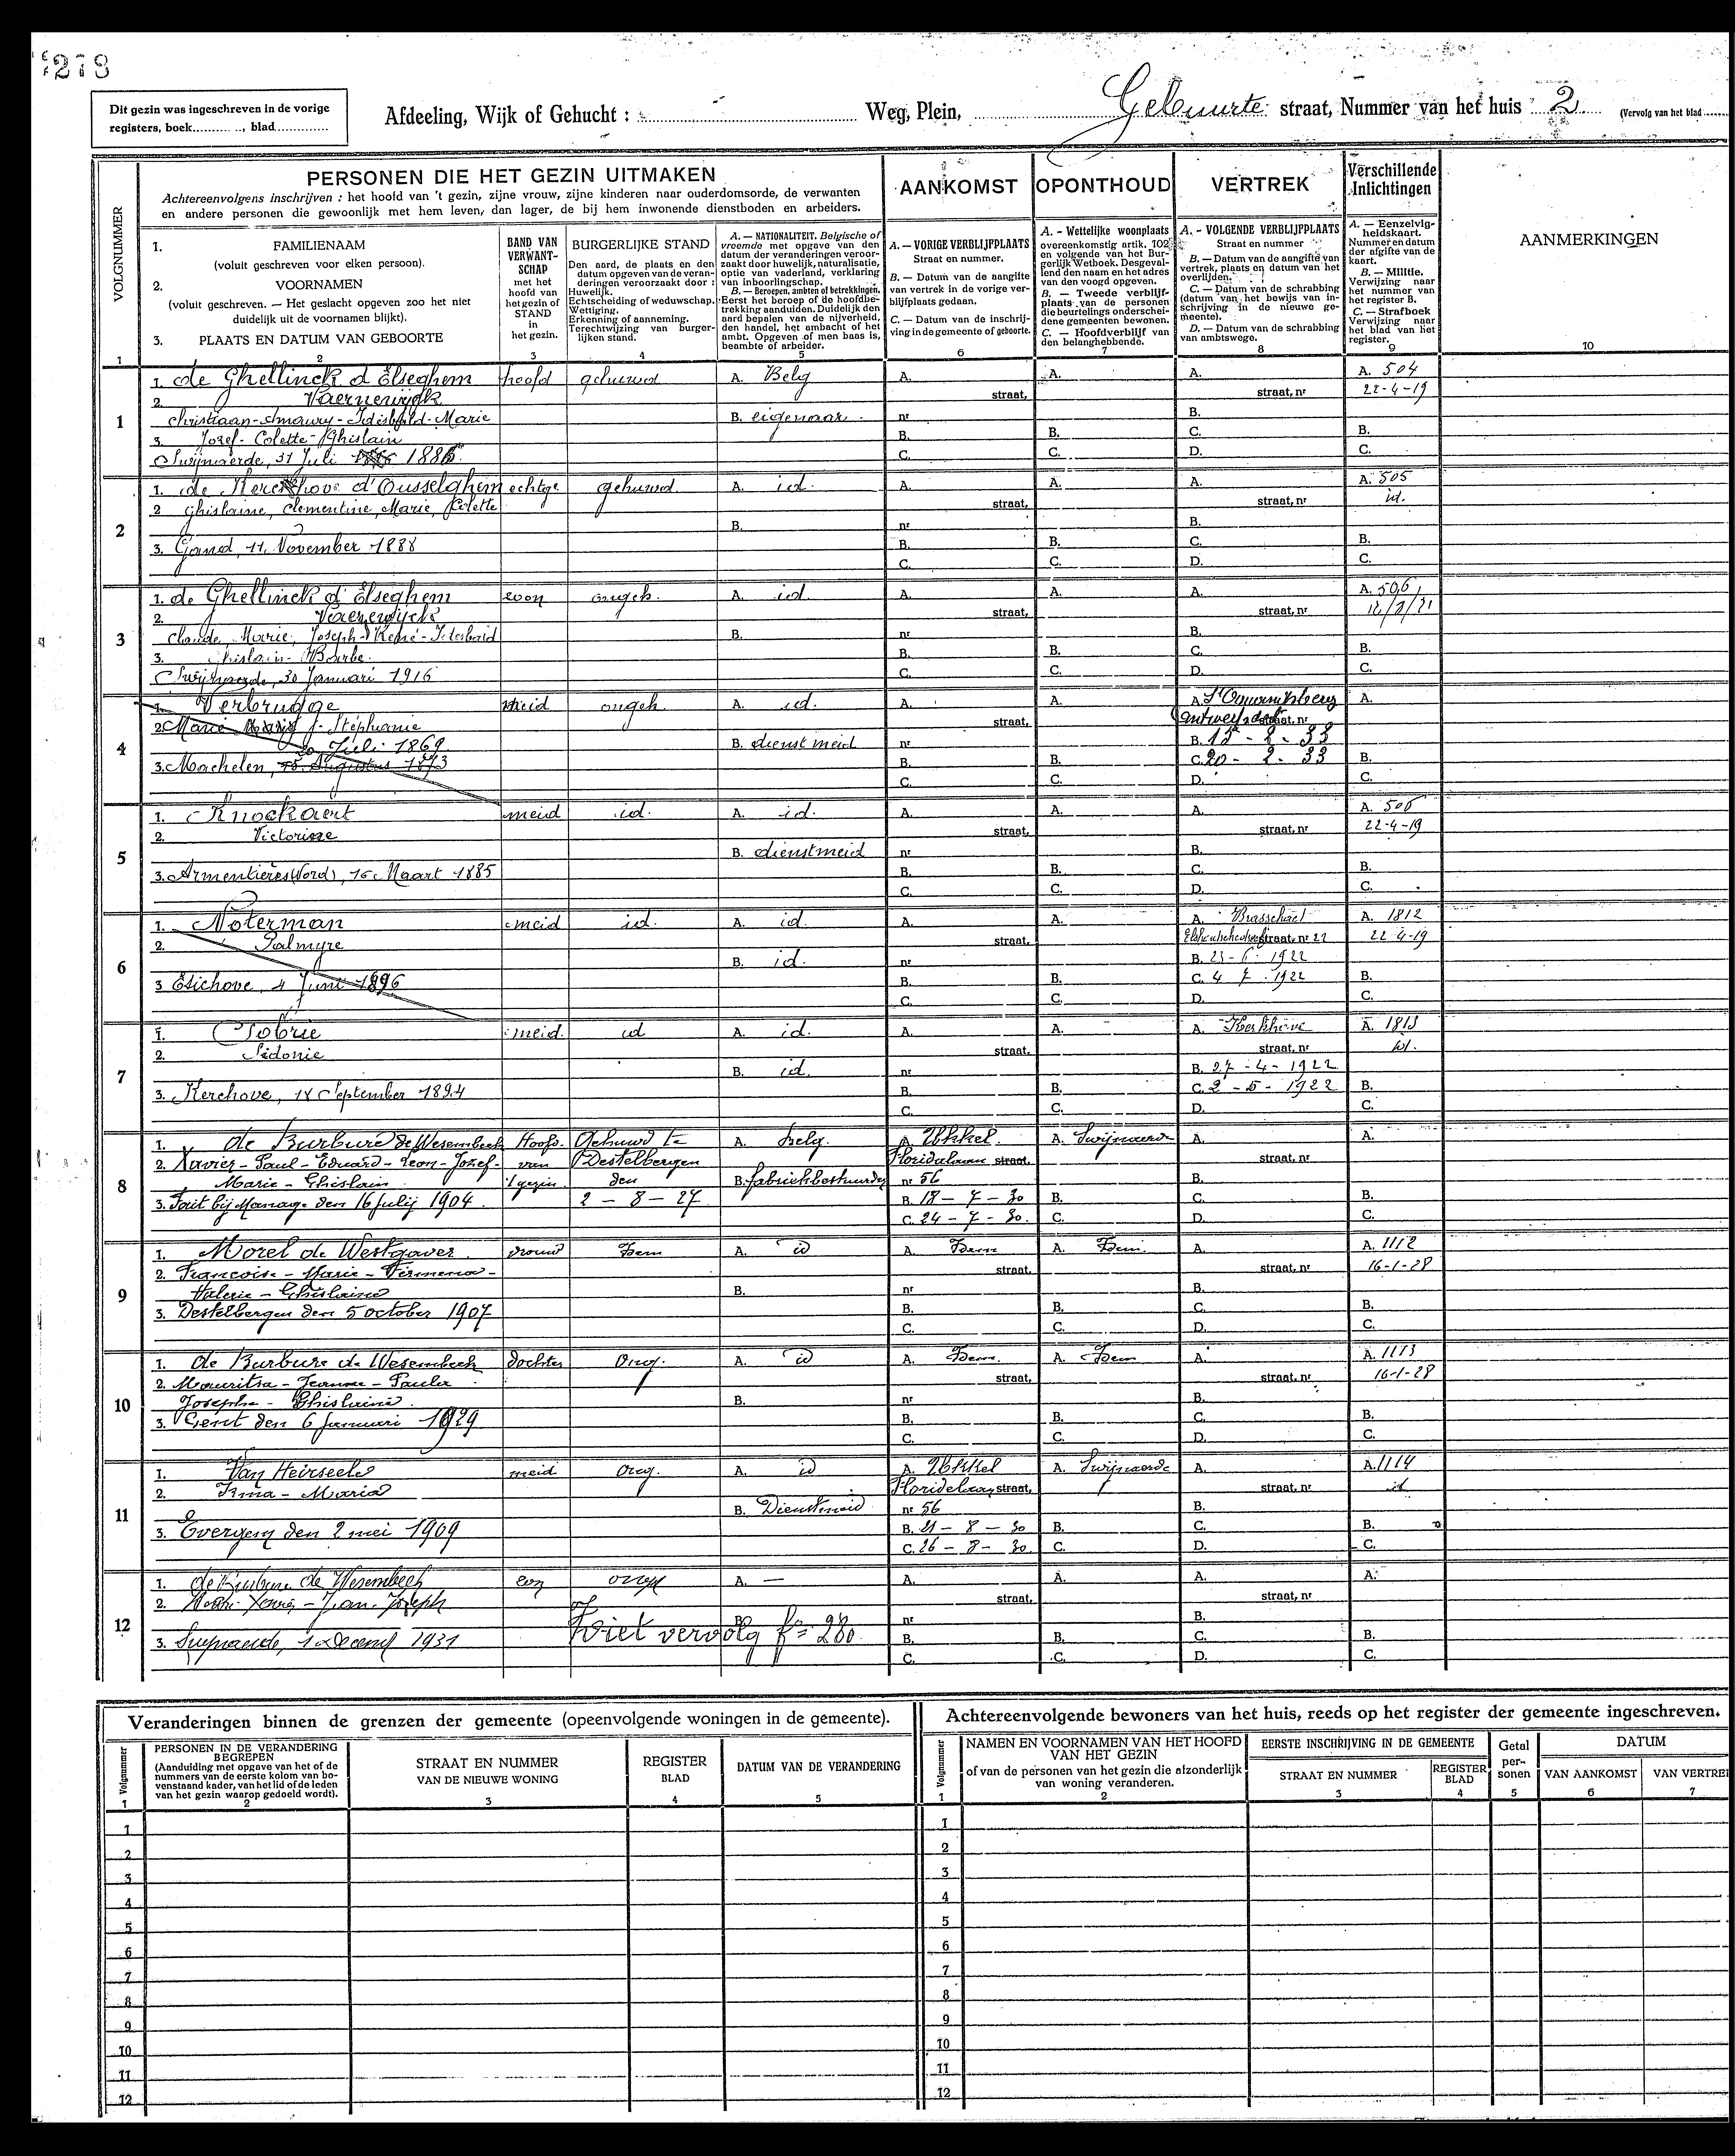 278
Dit gezin was ingeschreven in de vorige
registers, boek............, blad.............
Afdeeling, Wijk of Gehucht : ........ Weg, Plein, ........ Gebuurte straat, Nummer van het huis 2 (Vervolg van het blad ......
PERSONEN DIE HET GEZIN UITMAKEN
Achtereenvolgens inschrijven : het hoofd van 't gezin, zijne vrouw, zijne kinderen naar ouderdomsorde, de verwanten
en andere personen die gewoonlijk met hem leven, dan lager, de bij hem inwonende dienstboden en arbeiders.
AANKOMST
OPONTHOUD
VERTREK
Verschillende
Inlichtingen
VOLGNUMMER
1. FAMILIENAAM
(voluit geschreven voor elken persoon).
2. VOORNAMEN
(voluit geschreven. — Het geslacht opgeven zoo het niet
duidelijk uit de voornamen blijkt).
3. PLAATS EN DATUM VAN GEBOORTE
BAND VAN
VERWANT-
SCHAP
met het
hoofd van
het gezin of
STAND
in
het gezin.
BURGERLIJKE STAND
Den aard, de plaats en den
datum opgeven van de veran-
deringen veroorzaakt door :
Huwelijk.
Echtscheiding of weduwschap.
Wettiging.
Erkenning of aanneming.
Terechtwijzing van burger-
lijken stand.
A. — NATIONALITEIT. Belgische of
vreemde met opgave van den
datum der veranderingen veroor-
zaakt door huwelijk, naturalisatie,
optie van vaderland, verklaring
van inboorlingschap.
B. — Beroepen, ambten of betrekkingen.
Eerst het beroep of de hoofdbe-
trekking aanduiden. Duidelijk den
aard bepalen van de nijverheid,
den handel, het ambacht of het
ambt. Opgeven of men baas is,
beambte of arbeider.
A. — VORIGE VERBLIJFPLAATS
Straat en nummer.
B. — Datum van de aangifte
van vertrek in de vorige ver-
blijfplaats gedaan.
C. — Datum van de inschrij-
ving in de gemeente of geboorte.
A. - Wettelijke woonplaats
overeenkomstig artik. 102
en volgende van het Bur-
gerlijk Wetboek. Desgeval-
lend den naam en het adres
van den voogd opgeven.
B. — Tweede verblijf-
plaats van de personen
die beurtelings onderschei-
dene gemeenten bewonen.
C. — Hoofdverblijf van
den belanghebbende.
A. - VOLGENDE VERBLIJFPLAATS
Straat en nummer
B. — Datum van de aangifte van
vertrek, plaats en datum van het
overlijden.
C. — Datum van de schrabbing
(datum van het bewijs van in-
schrijving in de nieuwe ge-
meente).
D. — Datum van de schrabbing
van ambtswege.
A. — Eenzelvig-
heidskaart.
Nummer en datum
der afgifte van de
kaart.
B. — Militie.
Verwijzing naar
het nummer van
het register B.
C. — Strafboek
Verwijzing naar
het blad van het
register.
AANMERKINGEN
1 2 3 4 5 6 7 8 9 10
1
1. de Ghellinck d'Elseghem hoofd gehuwd A. Belg A. A. A. A. 504
2. Vaernewyck straat, straat, nr 22-4-19
Christiaan-Amaury-Idesbald-Marie B. eigenaar. nr B.
3. Jozef-Colette-Ghislain B. B. C. B.
Swijnaerde, 31 Juli 1886 C. C. D. C.
2
1. de Kerckhove d'Ousselghem echtge gehuwd. A. id. A. A. A. A. 505
2 Ghislaine, Clementine, Marie, Colette straat, straat, nr id.
B. nr B.
3. Gand, 11 November 1888 B. B. C. B.
C. C. D. C.
3
1. de Ghellinck d'Elseghem zoon ongeh. A. id A. A. A. A. 506
2. Vaernewyck straat, straat, nr
Claude, Marie, Joseph-René-Idesbald B. nr B.
3. Ghislain-Barbe. B. B. C. B.
Swijnaerde, 30 Januari 1916 C. C. D. C.
4
1. Verbrugge meid ongeh. A. id. A. A. A. A.
2. Marie Stéphanie straat, straat, nr
20 Juli 1869 B. dienstmeid nr B. 15 - 2 - 33
3. Machelen, 15 Augustus 1873 B. B. C. 20 - 2 - 33 B.
C. C. D. C.
5
1. Knockaert meid id. A. id. A. A. A. A. 506
2. Victorine straat, straat, nr 22-4-19
B. dienstmeid nr B.
3. Armentières (Nord), 16 Maart 1885 B. B. C. B.
C. C. D. C.
6
1. Noterman meid id. A. id. A. A. A. Brasschaet A. 1812
2. Palmyre straat, straat, nr 22 22-4-19
B. id. nr B. 23-6-1922
3 Etichove, 4 Juni 1896 B. B. C. 4 7. 1922 B.
C. C. D. C.
7
1. Sobrie meid. id A. id. A. A. A. Kerkhove A. 1813
2. Sidonie straat, straat, nr id.
B. id. nr B. 27-4-1922
3. Kerchove, 18 September 1894 B. B. C. 2-5-1922 B.
C. C. D. C.
8
1. de Burbure de Wesembeek Hoofd- Gehuwd te A. belg. A. Ukkel. A. Swijnaerde A. A.
2. Xavier-Paul-Eduard-Leon-Jozef- van Destelbergen Floridalaan straat, straat, nr
Marie-Ghislain. 't gezin den B. fabriekbestuurder nr 56 B.
3. Fait bij Manage den 16 july 1904. 2 - 8 - 27 B. 18 - 7 - 30 B. C. B.
C. 24 - 7 - 30. C. D. C.
9
1. Morel de Westgaver. vrouw Idem A. id A. Idem A. Idem. A. A. 1112
2. Francoise-Marie-Firmena- straat, straat, nr 16-1-28
Valerie-Ghislaine B. nr B.
3. Destelbergen den 5 october 1907 B. B. C. B.
C. C. D. C.
10
1. de Burbure de Wesembeek dochter Ong. A. id A. Idem. A. Idem A. A. 1113
2. Mauritsa-Jeanne-Paula straat, straat, nr 16-1-28
Josephe-Ghislaine. B. nr B.
3. Gent den 6 januari 1929 B. B. C. B.
C. C. D. C.
11
1. Van Heirseele meid Ong. A. id A. Ukkel A. Swijnaerde A. A. 1114
2. Irma-Maria Floridalaan straat, straat, nr id
B. Dienstmeid nr 56 B.
3. Evergem den 2 mei 1909 B. 21 - 8 - 30 B. C. B.
C. 26 - 8 - 30. C. D. C.
12
1. de Burbure de Wesembeek zon A. — A. A. A. A.
2. Jean-Joseph straat, straat, nr
Ziet vervolg f= 280 B. nr B.
3. Swynaerde, 1931 B. B. C. B.
C. C. D. C.
Veranderingen binnen de grenzen der gemeente (opeenvolgende woningen in de gemeente).
Achtereenvolgende bewoners van het huis, reeds op het register der gemeente ingeschreven.
Volgnummer
PERSONEN IN DE VERANDERING
BEGREPEN
(Aanduiding met opgave van het of de
nummers van de eerste kolom van bo-
venstaand kader, van het lid of de leden
van het gezin waarop gedoeld wordt).
STRAAT EN NUMMER
VAN DE NIEUWE WONING
REGISTER
BLAD
DATUM VAN DE VERANDERING
Volgnummer
NAMEN EN VOORNAMEN VAN HET HOOFD
VAN HET GEZIN
of van de personen van het gezin die afzonderlijk
van woning veranderen.
EERSTE INSCHRIJVING IN DE GEMEENTE
STRAAT EN NUMMER
REGISTER
BLAD
Getal
per-
sonen
DATUM
VAN AANKOMST
VAN VERTRE
1 2 3 4 5 1 2 3 4 5 6 7
1 1
2 2
3 3
4 4
5 5
6 6
7 7
8 8
9 9
10 10
11 11
12 12